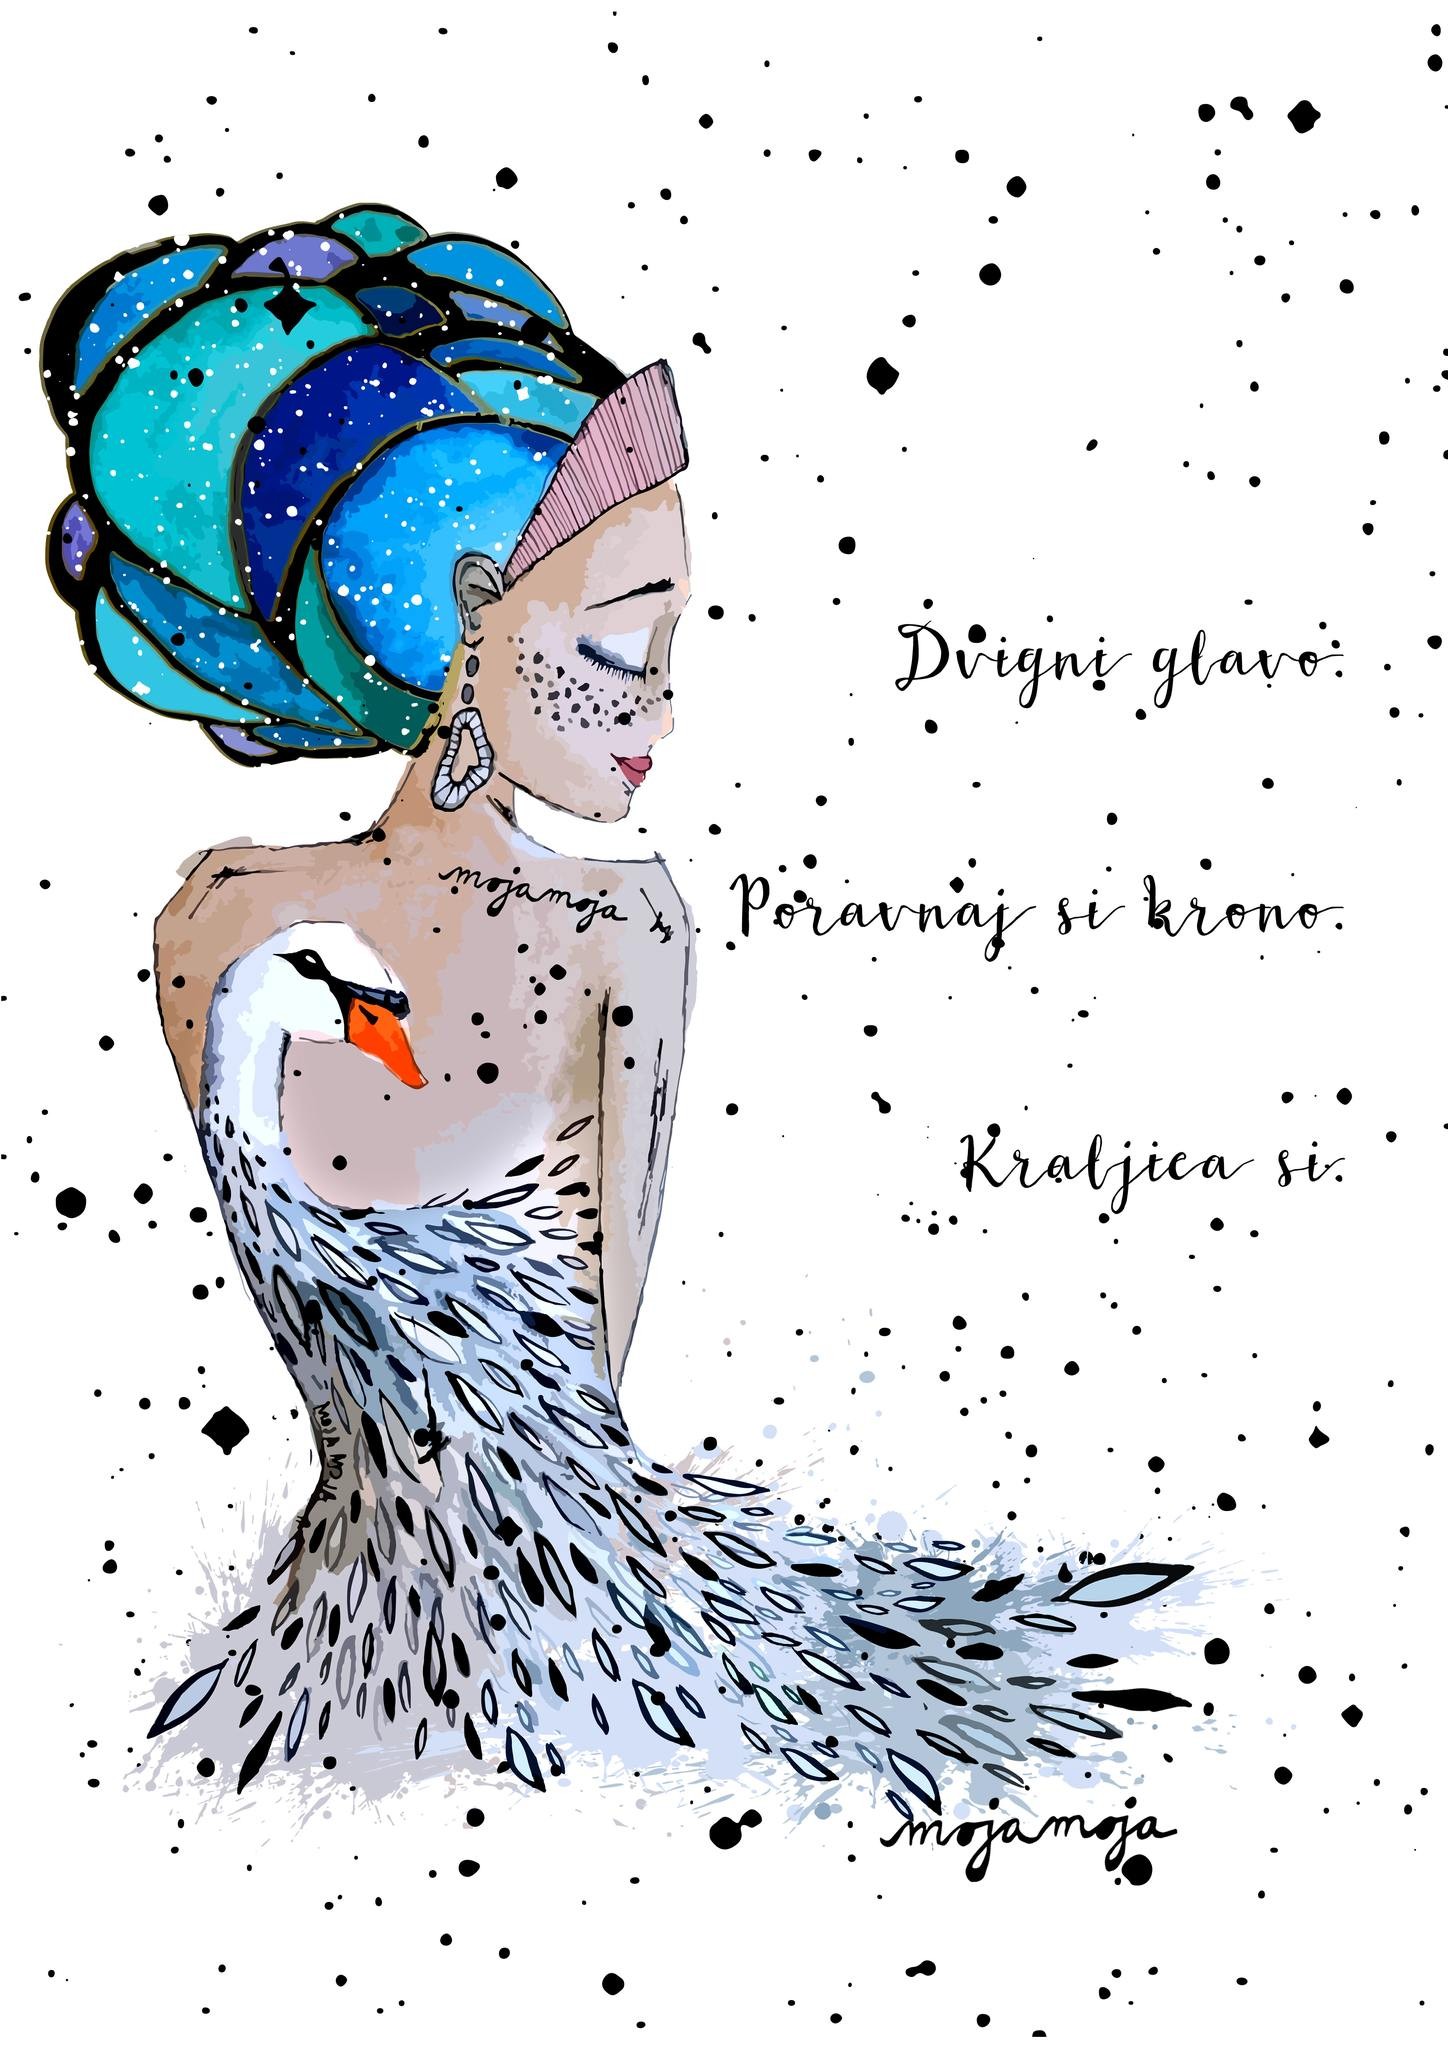 Dvigni glavo.
mojamoja
Poravnaj si krono.
Kraljica si.
MOJA MOJA
mojamoja